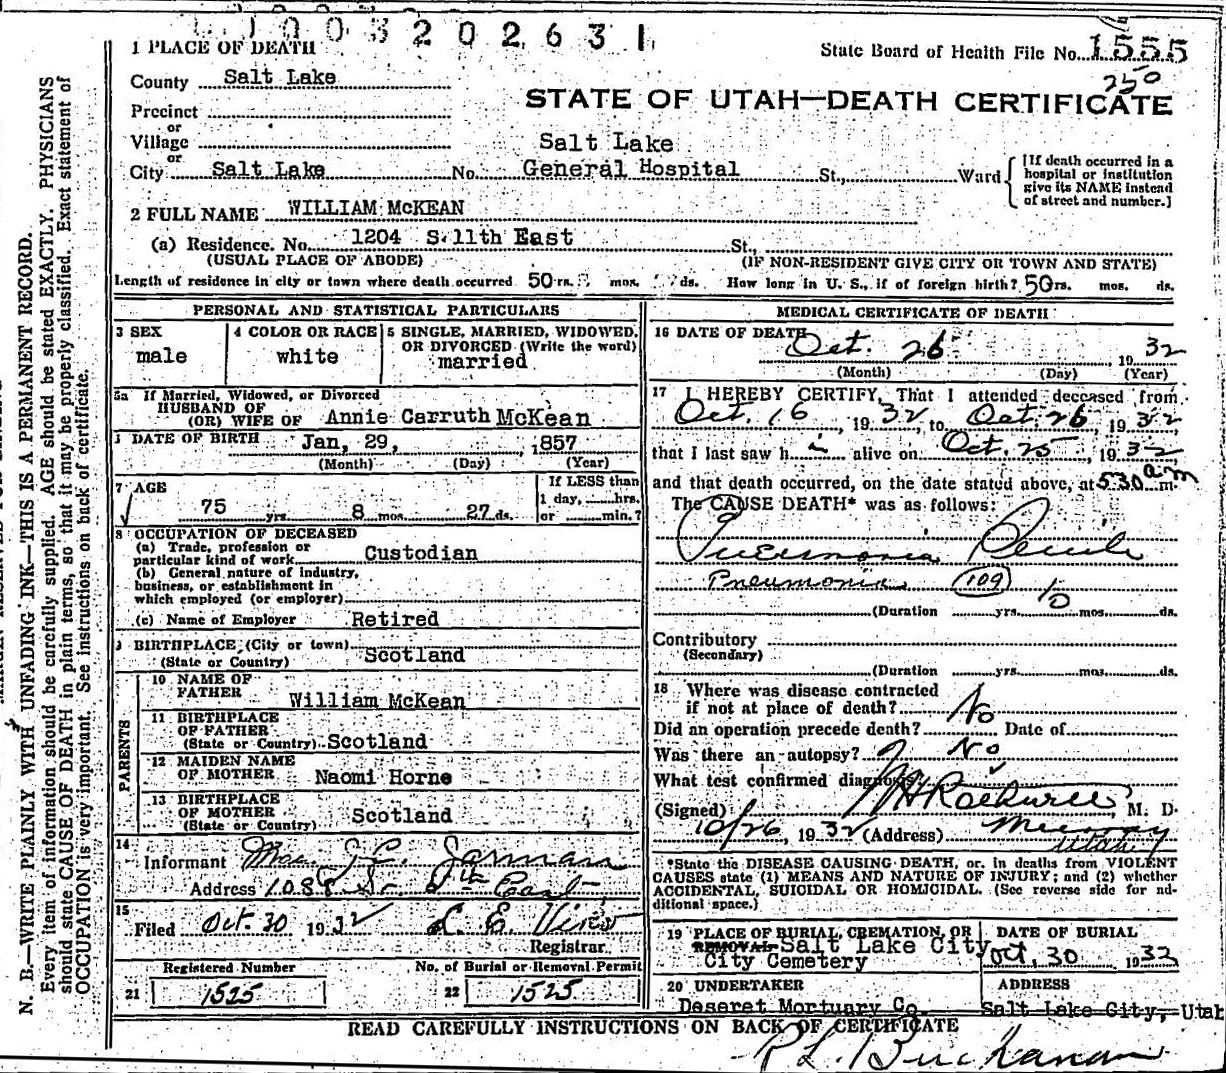 1003202631
1 PLACE OF DEATH
State Board of Health File No. 1555
250
County Salt Lake
STATE OF UTAH—DEATH CERTIFICATE
Precinct
or
Village
or
Salt Lake
City Salt Lake No. General Hospital St., Ward
[If death occurred in a
hospital or institution
give its NAME instead
of street and number.]
2 FULL NAME WILLIAM McKEAN
(a) Residence. No. 1204 S. 11th East St.,
(USUAL PLACE OF ABODE) (IF NON-RESIDENT GIVE CITY OR TOWN AND STATE)
Length of residence in city or town where death occurred 50 rs. mos. ds. How long in U. S., if of foreign birth? 50 rs. mos. ds.
PERSONAL AND STATISTICAL PARTICULARS
3 SEX
male
4 COLOR OR RACE
white
5 SINGLE, MARRIED, WIDOWED,
OR DIVORCED (Write the word)
married
5a If Married, Widowed, or Divorced
HUSBAND OF
(OR) WIFE OF Annie Carruth McKean
DATE OF BIRTH Jan, 29, 1857
(Month) (Day) (Year)
7 AGE
75 yrs 8 mos. 27 ds.
If LESS than
1 day, hrs.
or min.?
8 OCCUPATION OF DECEASED
(a) Trade, profession or
particular kind of work Custodian
(b) General nature of industry,
business, or establishment in
which employed (or employer)
(c) Name of Employer Retired
9 BIRTHPLACE (City or town)
(State or Country) Scotland
PARENTS
10 NAME OF
FATHER William McKean
11 BIRTHPLACE
OF FATHER
(State or Country) Scotland
12 MAIDEN NAME
OF MOTHER Naomi Horne
13 BIRTHPLACE
OF MOTHER
(State or Country) Scotland
14
Informant Mrs. J.C. Jarman
Address 1088 So. 8th East
15
Filed Oct. 30 1932
Registrar
Registered Number
21 1525
No. of Burial or Removal Permit
22 1525
MEDICAL CERTIFICATE OF DEATH
16 DATE OF DEATH
Oct. 26 1932
(Month) (Day) (Year)
17 I HEREBY CERTIFY, That I attended deceased from
Oct. 16, 1932, to Oct. 26, 1932
that I last saw h i alive on Oct. 25, 1932
and that death occurred, on the date stated above, at 530 a m.
The CAUSE DEATH* was as follows:
Pneumonia Senile
Pneumonia 109
10
(Duration yrs. mos. ds.
Contributory
(Secondary)
(Duration yrs. mos. ds.
18 Where was disease contracted
if not at place of death?
No
Did an operation precede death? Date of
Was there an autopsy? No
What test confirmed diagnosis?
(Signed) M. D.
10/26, 1932 (Address) Murray
Utah
*State the DISEASE CAUSING DEATH, or, in deaths from VIOLENT
CAUSES state (1) MEANS AND NATURE OF INJURY; and (2) whether
ACCIDENTAL, SUICIDAL OR HOMICIDAL. (See reverse side for ad-
ditional space.)
19 PLACE OF BURIAL, CREMATION, OR
REMOVAL Salt Lake City
City Cemetery
DATE OF BURIAL
Oct, 30 1932
20 UNDERTAKER
Deseret Mortuary Co.
ADDRESS
Salt Lake City, Utah
READ CAREFULLY INSTRUCTIONS ON BACK OF CERTIFICATE
R L. Buchanan
N. B.—WRITE PLAINLY WITH UNFADING INK—THIS IS A PERMANENT RECORD.
Every item of information should be carefully supplied. AGE should be stated EXACTLY. PHYSICIANS
should state CAUSE OF DEATH in plain terms, so that it may be properly classified. Exact statement of
OCCUPATION is very important. See instructions on back of certificate.